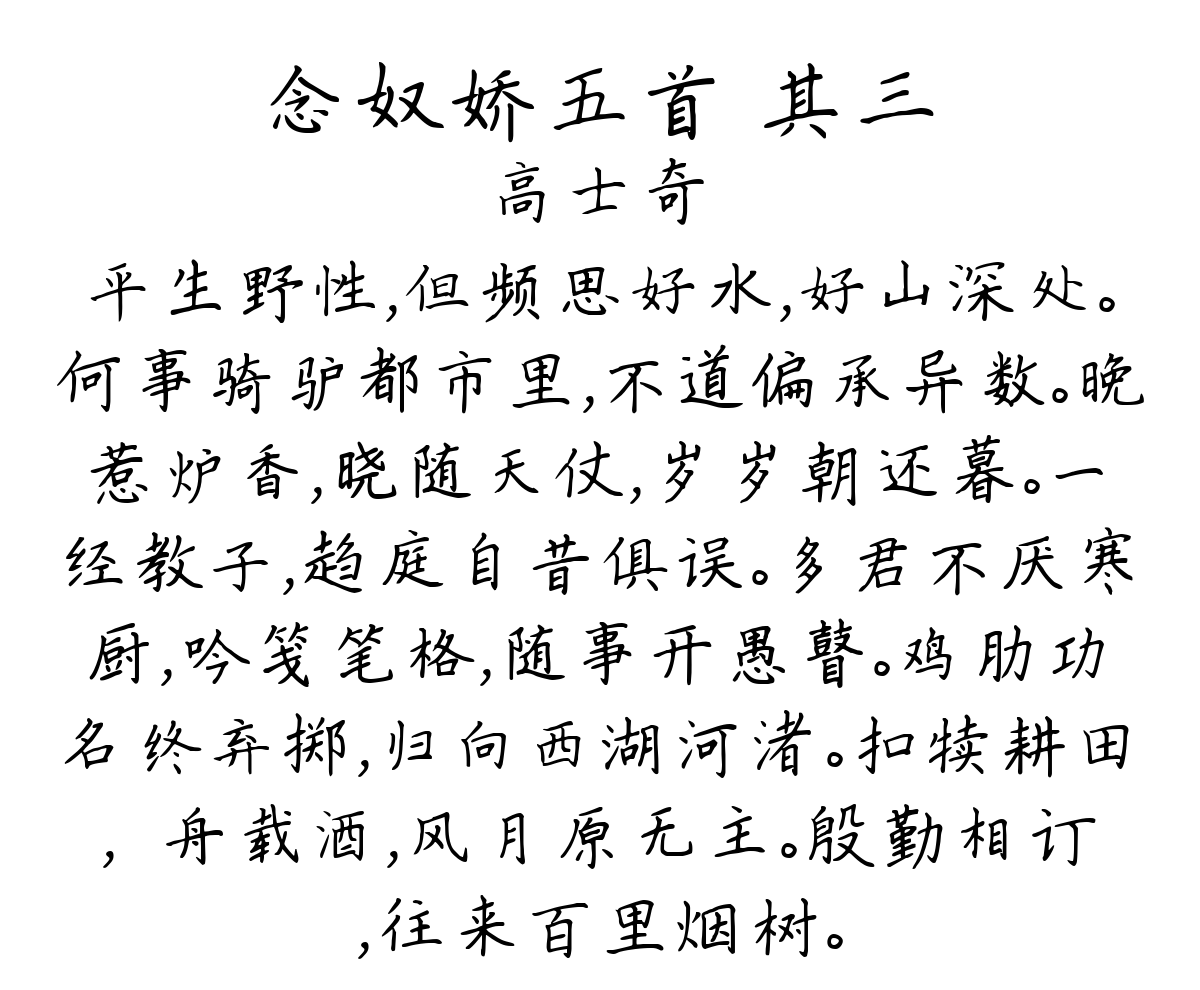 念奴娇五首 其三
高士奇
平生野性,但频思好水,好山深处。
何事骑驴都市里,不道偏承异数。晚
惹炉香,晓随天仗,岁岁朝还暮。一
经教子,趋庭自昔俱误。多君不厌寒
厨,吟笺笔格,随事开愚瞽。鸡肋功
名终弃掷,归向西湖河渚。扣犊耕田
，舟载酒,风月原无主。殷勤相订
,往来百里烟树。